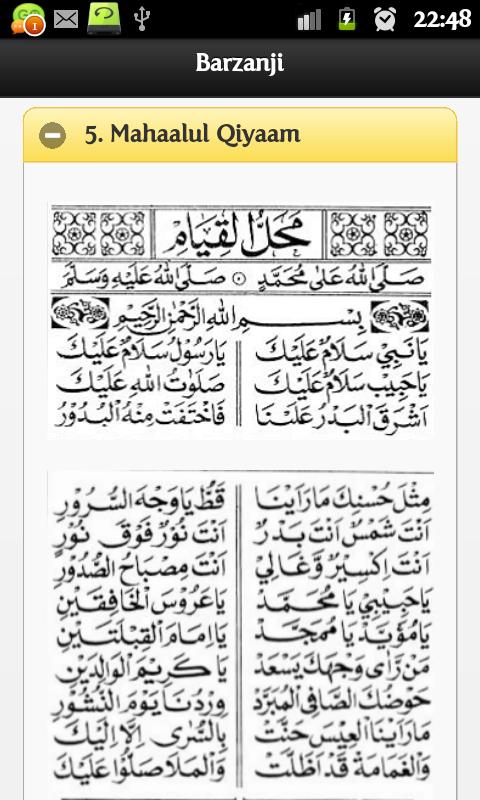 22:48
Barzanji
5. Mahaalul Qiyaam
مَحَلُّ الْقِيَامِ
صَلَّى اللهُ عَلَى مُحَمَّدٍ صَلَّى اللهُ عَلَيْهِ وَسَلَّمَ
بِسْمِ اللهِ الرَّحْمٰنِ الرَّحِيْمِ
يَا نَبِيْ سَلَامٌ عَلَيْكَ يَا رَسُوْلْ سَلَامٌ عَلَيْكَ
يَا حَبِيْبْ سَلَامٌ عَلَيْكَ صَلَوٰتُ اللهِ عَلَيْكَ
اَشْرَقَ الْبَدْرُ عَلَيْنَا فَاخْتَفَتْ مِنْهُ الْبُدُوْرُ
مِثْلَ حُسْنِكَ مَا رَاَيْنَا قَطُّ يَا وَجْهَ السُّرُوْرِ
اَنْتَ شَمْسٌ اَنْتَ بَدْرٌ اَنْتَ نُوْرٌ فَوْقَ نُوْرٍ
اَنْتَ اِكْسِيْرٌ وَّغَالِيْ اَنْتَ مِصْبَاحُ الصُّدُوْرِ
يَا حَبِيْبِيْ يَا مُحَمَّدُ يَا عَرُوْسَ الْخَافِقَيْنِ
يَا مُؤَيَّدُ يَا مُمَجَّدُ يَا اِمَامَ الْقِبْلَتَيْنِ
مَنْ رَّاٰى وَجْهَكَ يَسْعَدُ يَا كَرِيْمَ الْوَالِدَيْنِ
حَوْضُكَ الصَّافِى الْمُبَرَّدُ وِرْدُنَا يَوْمَ النُّشُوْرِ
مَا رَاَيْنَا الْعِيْسَ حَنَّتْ بِالسُّرٰى اِلَّا اِلَيْكَ
وَالْغَمَامَةُ قَدْ اَظَلَّتْ وَالْمَلَا صَلُّوْا عَلَيْكَ